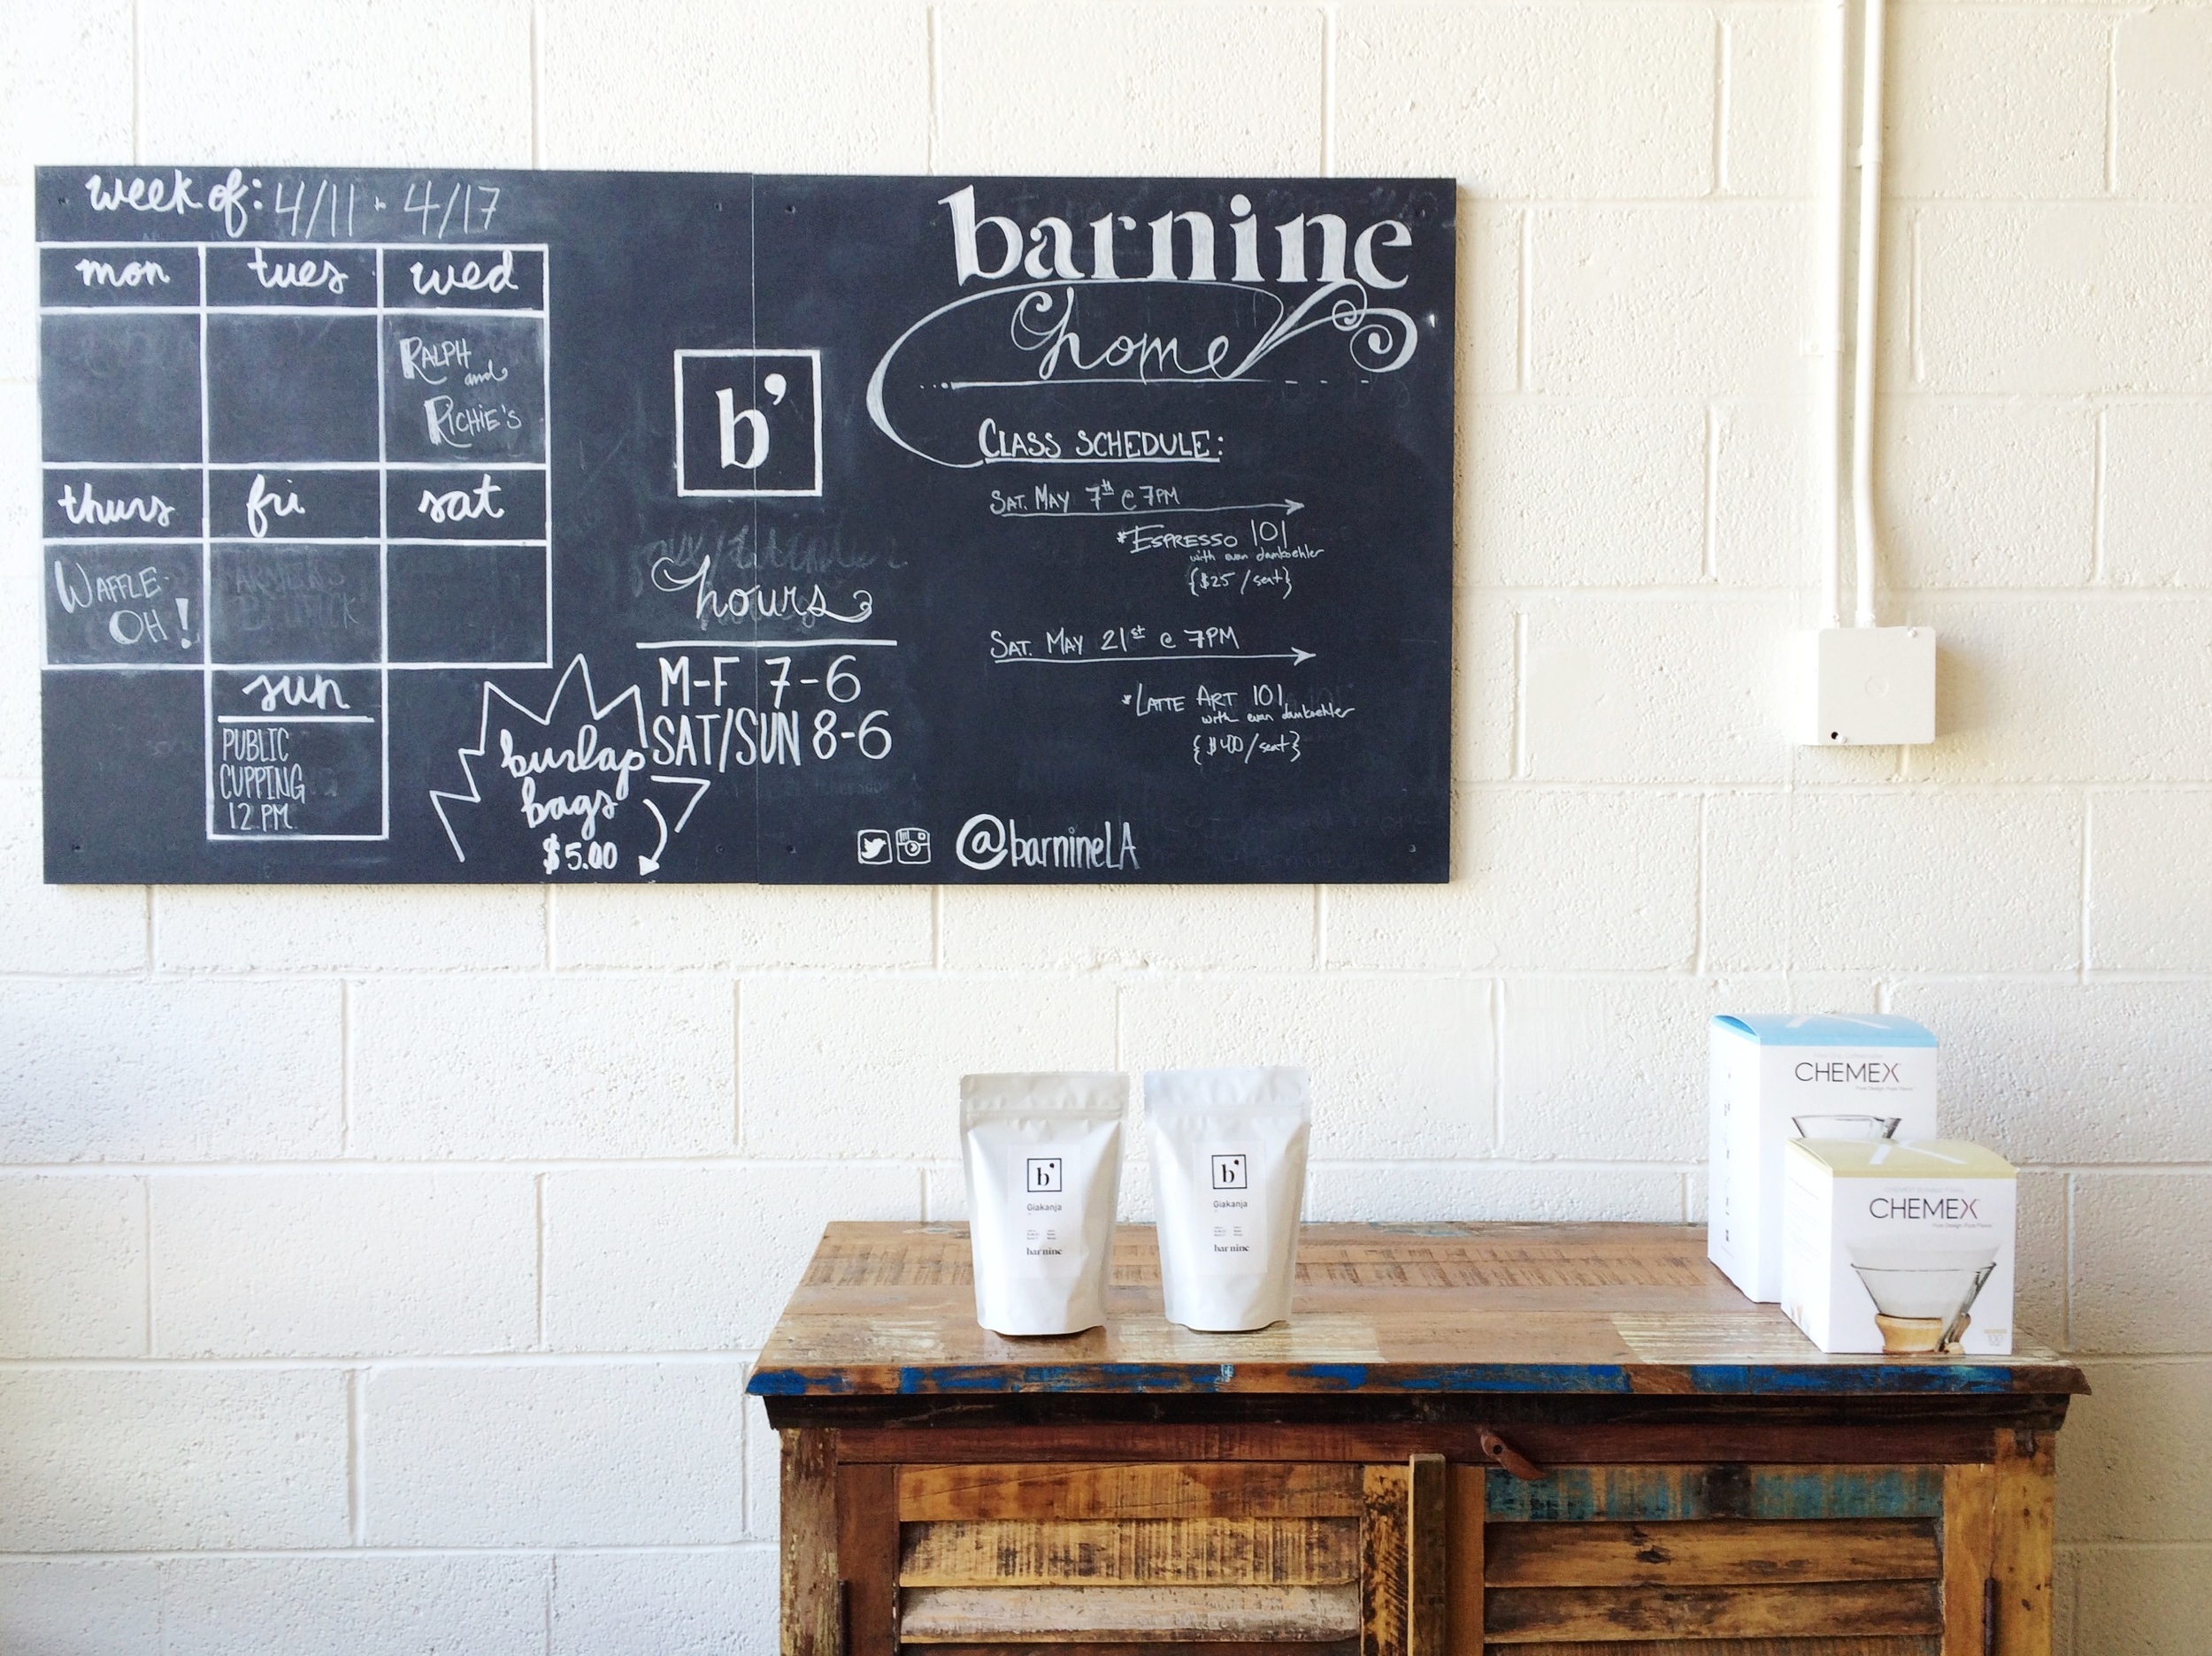 week of: 4/11 - 4/17
mon tues wed
RALPH
and
RICHIE'S
thurs fri sat
WAFFLE-
OH!
sun
PUBLIC
CUPPING
12 PM
b'
hours
M-F 7-6
SAT/SUN 8-6
burlap
bags
$5.00
barnine
home
CLASS SCHEDULE:
SAT. MAY 7th @ 7PM
*ESPRESSO 101
with evan damkoehler
{$25/seat}
SAT. MAY 21st @ 7PM
*LATTE ART 101
with evan damkoehler
{$40/seat}
@barnineLA
b'
Giakanja
bar nine
b'
Giakanja
bar nine
CHEMEX
Pure Design. Pure Flavor.
CHEMEX
Pure Design. Pure Flavor.